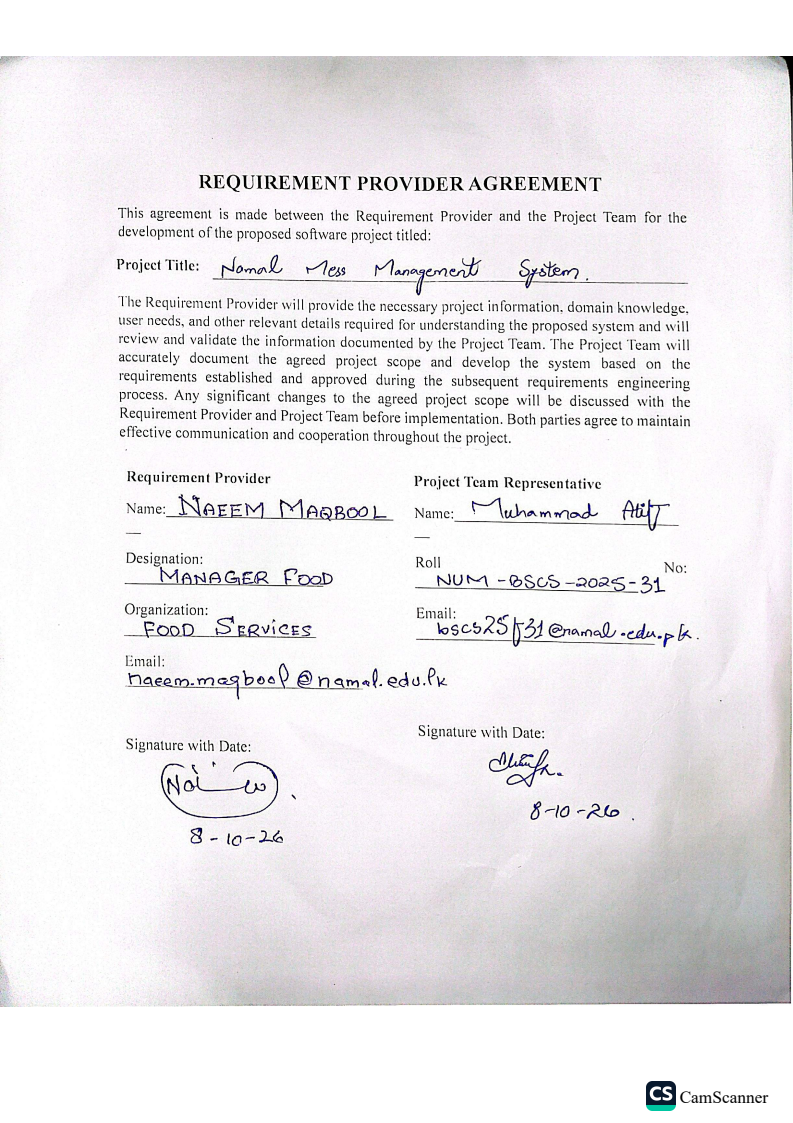 REQUIREMENT PROVIDER AGREEMENT
This agreement is made between the Requirement Provider and the Project Team for the
development of the proposed software project titled:
Project Title: Namal Mess Management System.
The Requirement Provider will provide the necessary project information, domain knowledge,
user needs, and other relevant details required for understanding the proposed system and will
review and validate the information documented by the Project Team. The Project Team will
accurately document the agreed project scope and develop the system based on the
requirements established and approved during the subsequent requirements engineering
process. Any significant changes to the agreed project scope will be discussed with the
Requirement Provider and Project Team before implementation. Both parties agree to maintain
effective communication and cooperation throughout the project.
Requirement Provider
Name: NAEEM MAQBOOL
Designation:
MANAGER FOOD
Organization:
FOOD SERVICES
Email:
naeem.maqbool@namal.edu.pk
Signature with Date:
8-10-26
Project Team Representative
Name: Muhammad Atif
Roll No:
NUM-BSCS-2025-31
Email:
bscs25f31@namal.edu.pk.
Signature with Date:
8-10-26.
CS CamScanner